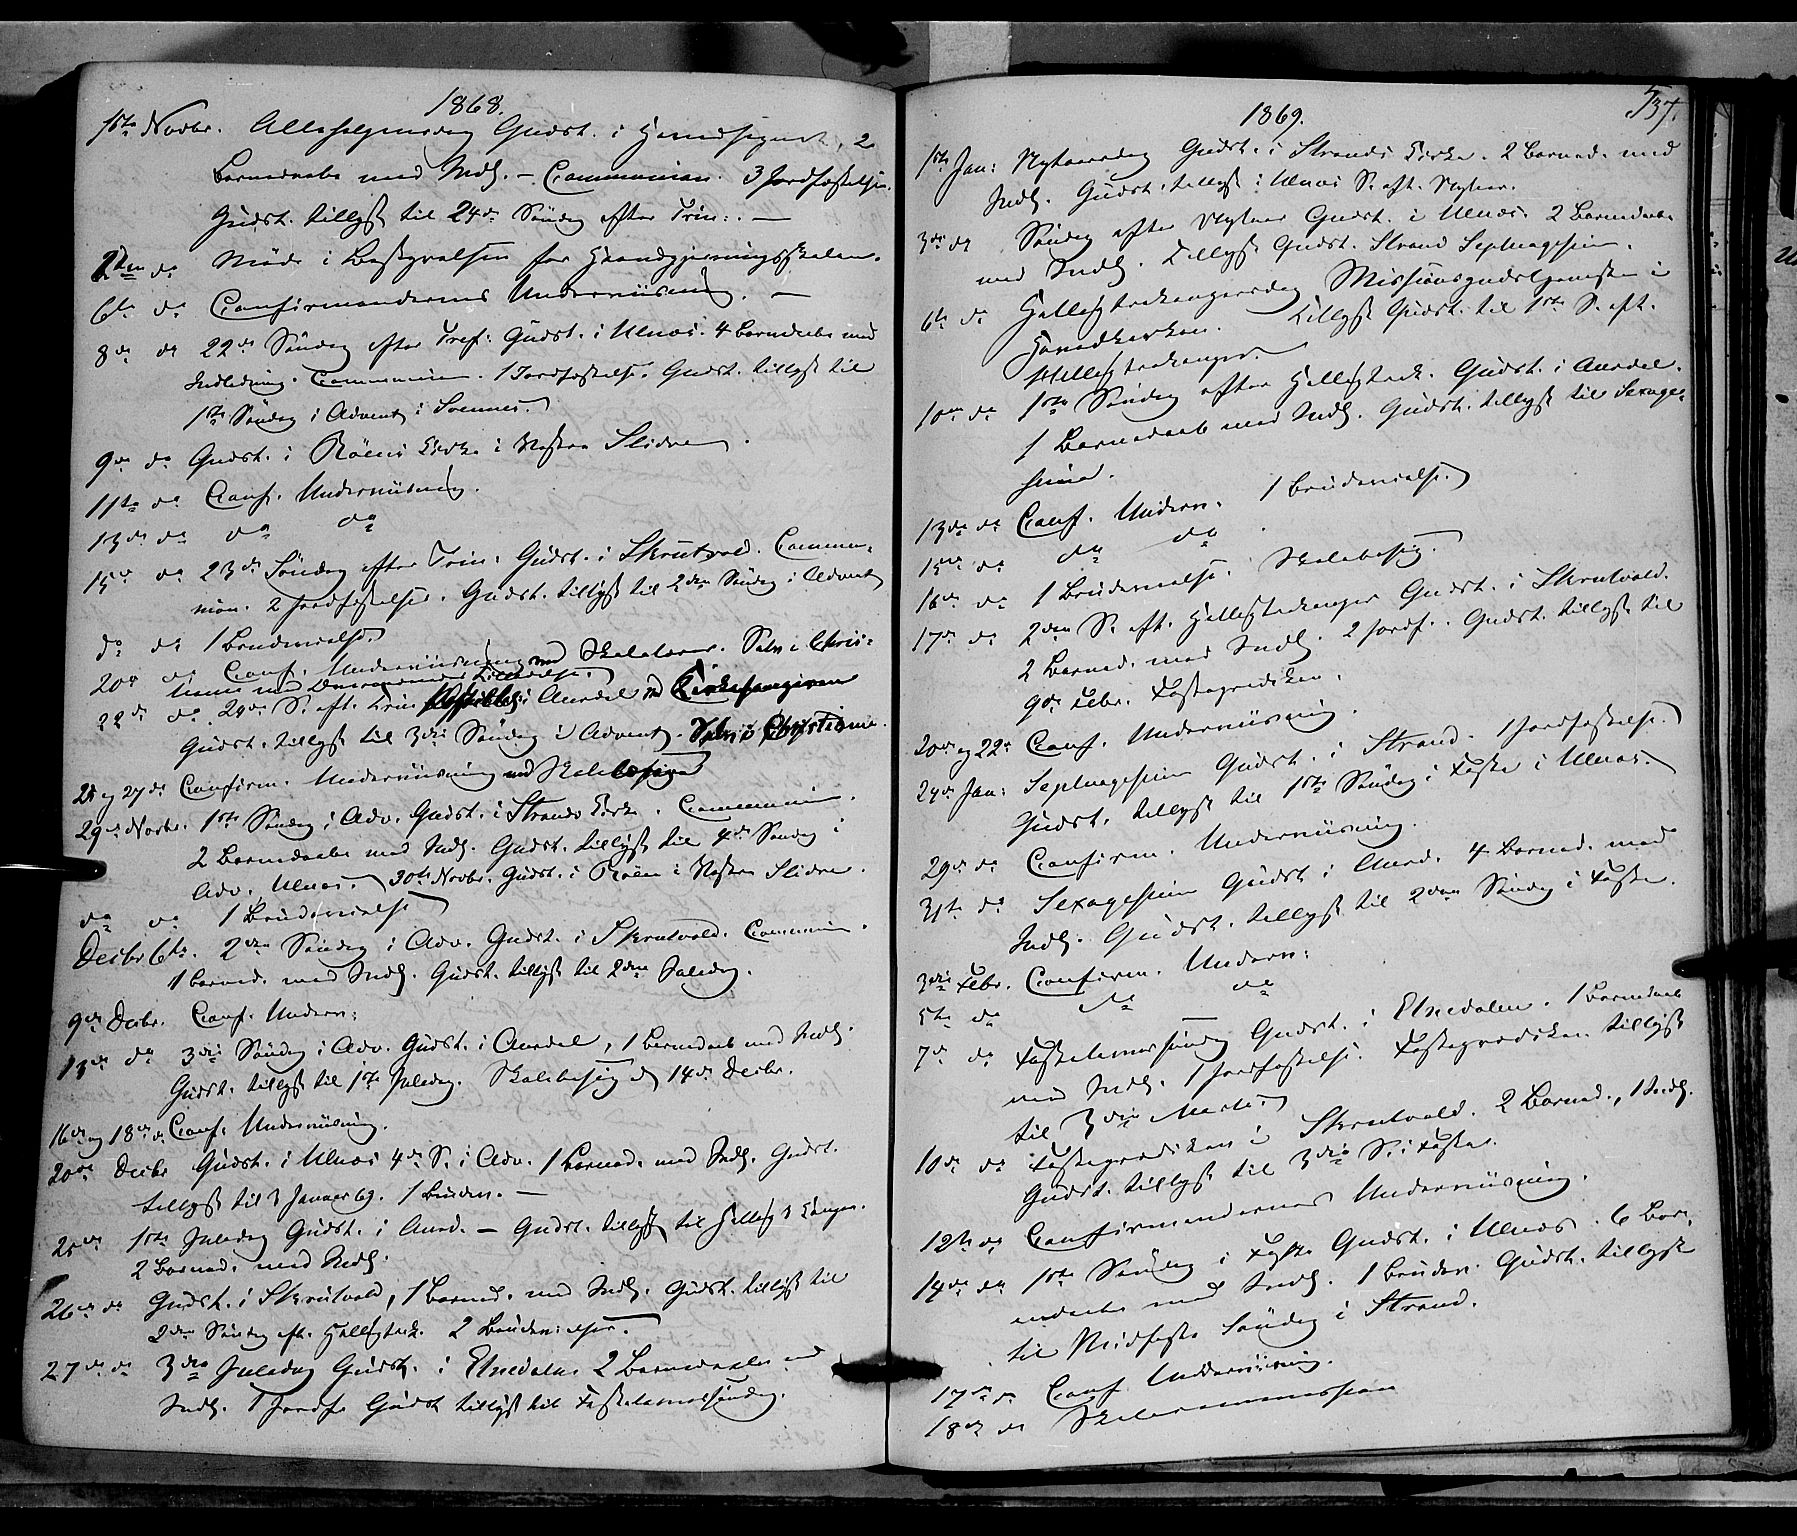 1868.
1ste Novbr. Allehelgensdag Gudst. i Hovedsognet, 2
Barnedaabe med Indl. – Communion. 3 Jordfæstelser.
Gudst. tillyst til 24de Søndag efter Trin: –
2den do Møde i Bestyrelsen for Haandgjerningsskolen.
6te do Confirmandernes Underviisning. –
8de do 22de Søndag efter Tref: Gudst. i Ulnæs. 4 Barnedaabe med
Indledning. Communion. 1 Jordfæstelse. Gudst. tillyst til
1ste Søndag i Advent i Svennes.
9de do Gudst. i Røens Kirke i Vestre Slidre.
11te do Conf. Underviisning.
13de do do do
15de do 23de Søndag efter Trin: Gudst. i Skrutvold. Commu-
nion. 2 Jordfæstelser. Gudst. tillyst til 2den Søndag i Advent
do do 1 Brudevielse.
20de do Conf. Underviisning med Skolelærer.
22de do 24de S. eft. Trin i Aurdal
Gudst. tillyst til 3die Søndag i Advent.
25 og 27de Confirm. Underviisning med Skolebesøg
29de Novbr. 1ste Søndag i Adv. Gudst. i Strands Kirke. Communion.
2 Barnedaabe med Indl. Gudst. tillyst til 4de Søndag i
Adv. Ulnæs. 30te Novbr. Gudst. i Røen i Vestre Slidre.
do do 1 Brudevielse
Decbr 6te. 2den Søndag i Adv. Gudst. i Skrutvold. Communion.
1 Barned. med Indl. Gudst. tillyst til 2den Juledag.
9de Decbr. Conf. Underv:
13de do 3die Søndag i Adv. Gudst. i Aurdal, 1 Barnedaab med Indl.
Gudst. tillyst til 1ste Juledag. Skolebesøg d. 14de Decbr.
16de og 18de do Conf. Underviisning.
20de Decbr Gudst. i Ulnæs 4de S. i Adv. 1 Barned. med Indl. Gudst.
tillyst til 3 Januar 69. 1 Brudev. –
25de 1ste Juledag Gudst. i Aurd. – Gudst. tillyst til Hellig 3 Konger.
2 Barned. med Indl.
26de do Gudst. i Skrutvold, 1 Barned. med Indl. Gudst. tillyst til
2den Søndag eft. Helligtrek. 2 Brudevielser.
27de do 3die Juledag Gudst. i Etnedalen 2 Barnedaabe med
Indl. 1 Jordf. Gudst tillyst til Fastelavnssøndag.
537.
1869.
1ste Jan: Nytaarsdag Gudst. i Strands Kirke. 2 Barned. med
Indl. Gudst. tillyst i Ulnæs S. eft. Nytaar.
3die do Søndag efter Nytaar Gudst. i Ulnæs. 2 Barnedaabe
med Indl. Tillyst Gudst. Strand Septuagesima.
6te do Helligtrekongersdag Missionsgudstjeneste i
Hovedkirken. Tillyst Gudst. til 1ste S. eft.
Helligtrekonger.
10de do 1ste Søndag efter Helligtrek. Gudst. i Aurdal.
1 Barnedaab med Indl. Gudst. tillyst til Sexage-
sima.
13de do Conf. Underv. 1 Brudevielse.
15de do do do
16de do 1 Brudevielse. Skolebesøg.
17de do 2den S. eft. Helligtrekonger Gudst. i Skrutvold.
2 Barned. med Indl. 2 Jordf. Gudst. tillyst til
9de Febr. Fasteprædiken.
20de og 22de Conf. Underviisning.
24de Jan: Septuagesima Gudst. i Strand. 1 Jordfæstelse.
Gudst. tillyst til 1ste Søndag i Faste i Ulnæs.
29de do Confirm. Underviisning.
31te do Sexagesima Gudst. i Aurd. 4 Barned. med
Indl. Gudst. tillyst til 2den Søndag i Faste.
3die Febr. Confirm. Underv:
5te do do do
7de do Fastelavnssøndag Gudst. i Etnedalen. 1 Barnedaab
med Indl. 1 Jordfæstelse. Fasteprædiken tillyst
til 3die Marts.
10de do Fasteprædiken i Skrutvold. 2 Barned., 1 Indl.
Gudst. tillyst til 3die S. i Faste.
12te do Confirmandernes Underviisning.
14de do 1ste Søndag i Faste Gudst. i Ulnæs. 6 Bar-
nedaabe med Indl. 1 Brudev. Gudst. tillyst
til Midfaste Søndag i Strand.
17de do Conf. Underviisning.
18de do Skolecommission